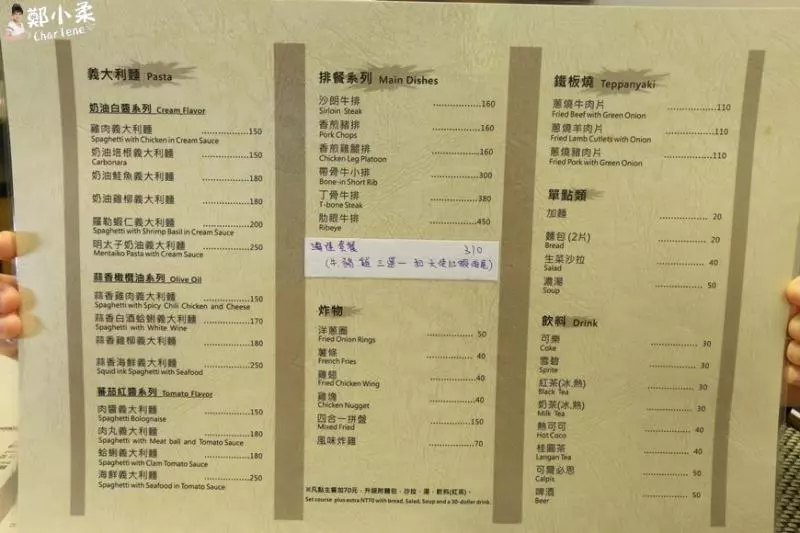 鄭小柔
Charlene
義大利麵 Pasta
奶油白醬系列 Cream Flavor
雞肉義大利麵 150
Spaghetti with Chicken in Cream Sauce
奶油培根義大利麵 150
Carbonara
奶油鮭魚義大利麵 180
奶油雞柳義大利麵 180
羅勒蝦仁義大利麵 200
Spaghetti with Shrimp Basil in Cream Sauce
明太子奶油義大利麵 250
Mentaiko Pasta with Cream Sauce
蒜香橄欖油系列 Olive Oil
蒜香雞肉義大利麵 150
Spaghetti with Spicy Chili Chicken and Cheese
蒜香白酒蛤蜊義大利麵 170
Spaghetti with White Wine
蒜香雞柳義大利麵 180
蒜香海鮮義大利麵 250
Squid ink Spaghetti with Seafood
蕃茄紅醬系列 Tomato Flavor
肉醬義大利麵 150
Spaghetti Bolognaise
肉丸義大利麵 180
Spaghetti with Meat ball and Tomato Sauce
蛤蜊義大利麵 180
Spaghetti with Clam Tomato Sauce
海鮮義大利麵 250
Spaghetti with Seafood in Tomato Sauce
排餐系列 Main Dishes
沙朗牛排 160
Sirloin Steak
香煎豬排 160
Pork Chops
香煎雞腿排 160
Chicken Leg Platoon
帶骨牛小排 300
Bone-in Short Rib
丁骨牛排 380
T-bone Steak
肋眼牛排 450
Ribeye
套餐 310
三選一
炸物
洋蔥圈 50
Fried Onion Rings
薯條 40
French Fries
雞翅 40
Fried Chicken Wing
雞塊 40
Chicken Nugget
四合一拼盤 150
Mixed Fried
風味炸雞 70
※凡點主餐加70元，升級附麵包，沙拉，湯，飲料(紅茶)。
Set course plus extra NT70 with bread, Salad, Soup and a 30-dollar drink.
鐵板燒 Teppanyaki
蔥燒牛肉片 110
Fried Beef with Green Onion
蔥燒羊肉片 110
Fried Lamb Cutlets with Onion
蔥燒豬肉片 110
Fried Pork with Green Onion
單點類
加麵 20
麵包(2片) 20
Bread
生菜沙拉 40
Salad
濃湯 50
Soup
飲料 Drink
可樂 30
Coke
雪碧 30
Sprite
紅茶(冰,熱) 30
Black Tea
奶茶(冰,熱) 30
Milk Tea
熱可可 40
Hot Coco
桂圓茶 40
Langan Tea
可爾必思 40
Calpis
啤酒 50
Beer